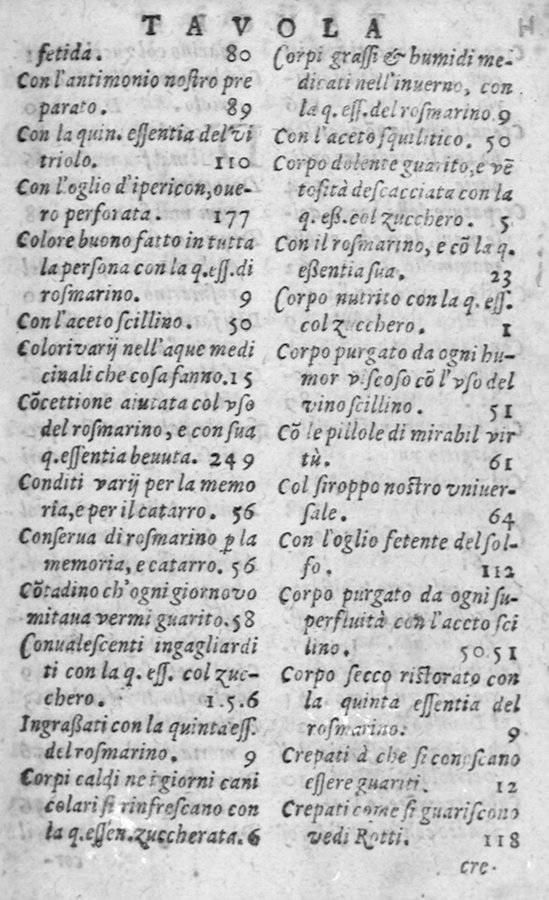 TAVOLA
fetida. 80
Con l'antimonio nostro pre
parato. 89
Con la quin. essentia del vi
triolo. 110
Con l'oglio d'ipericon, oue-
ro perforata. 177
Colore buono fatto in tutta
la persona con la q. ess. di
rosmarino. 9
Con l'aceto scillino. 50
Colori varij nell'aque medi
cinali che cosa fanno. 15
Cõcettione aiutata col vso
del rosmarino, e con sua
q. essentia beuuta. 249
Conditi varij per la memo
ria, e per il catarro. 56
Conserua di rosmarino ꝑ la
memoria, e catarro. 56
Cõtadino ch'ogni giorno vo
mitaua vermi guarito. 58
Conualescenti ingagliardi
ti con la q. ess. col zuc-
chero. 1.5.6
Ingraßati con la quinta ess.
del rosmarino. 9
Corpi caldi ne i giorni cani
colari si rinfrescano con
la q. essen. zuccherata. 6
Corpi grassi & humidi me-
dicati nell'inuerno, con
la q. ess. del rosmarino. 9
Con l'aceto squilitico. 50
Corpo dolente guarito, e vẽ
tosità descacciata con la
q. eß. col zucchero. 5
Con il rosmarino, e cõ la q.
eßentia sua. 23
Corpo nutrito con la q. ess.
col zucchero. 1
Corpo purgato da ogni hu-
mor viscoso cõ l'vso del
vino scillino. 51
Cõ le pillole di mirabil vir
tù. 61
Col siroppo nostro vniuer-
sale. 64
Con l'oglio fetente del sol-
fo. 112
Corpo purgato da ogni su-
perfluità con l'aceto sci
lino. 50.51
Corpo secco ristorato con
la quinta essentia del
rosmarino. 9
Crepati à che si conoscano
essere guariti. 12
Crepati come si guariscono
vedi Rotti. 118
cre-